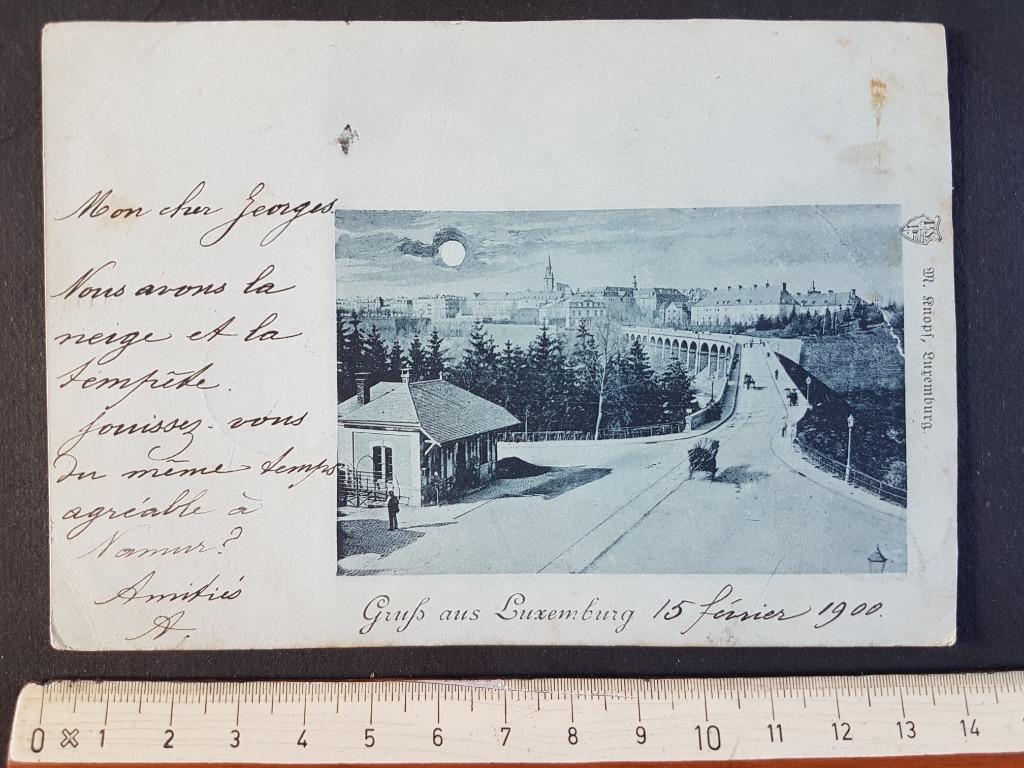 Mon cher Georges.
Nous avons la
neige et la
tempête.
jouissez-vous
du même temps
agréable à
Namur?
Amitiés
A.
Gruß aus Luxemburg 15 février 1900.
W. Knopf, Luxemburg.
0 1 2 3 4 5 6 7 8 9 10 11 12 13 14